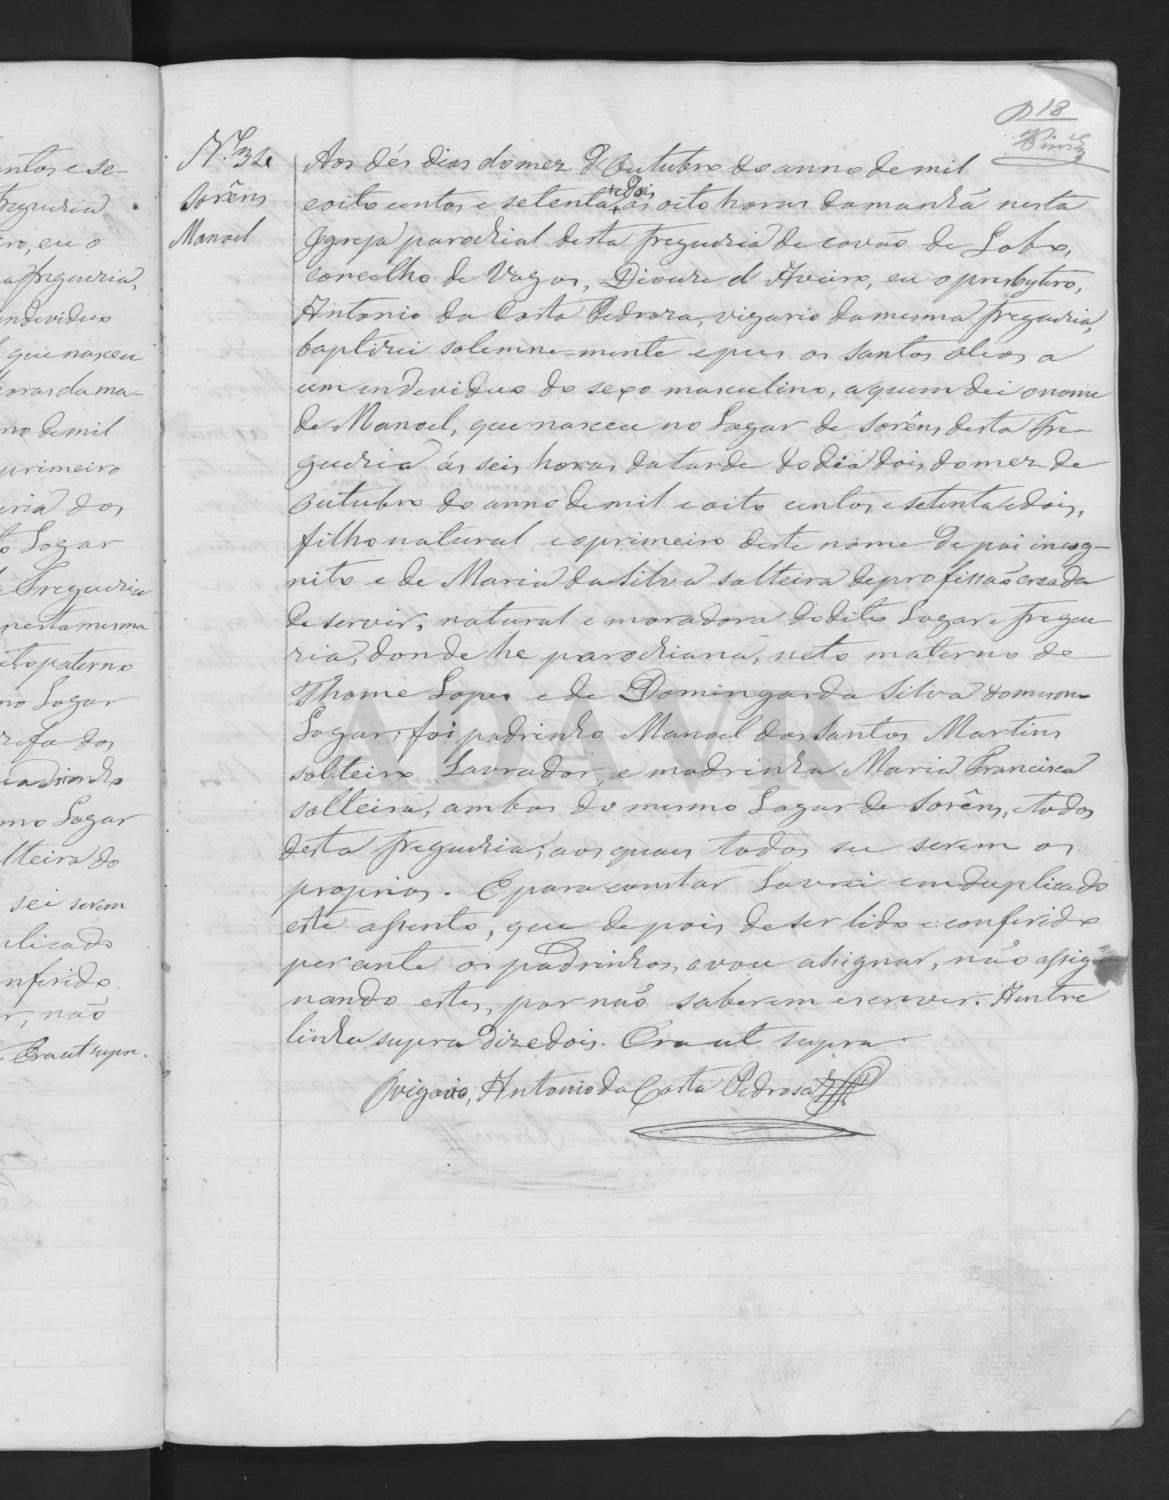 18
ntos e se-
freguezia
ro, eu o
a freguezia,
individuo
que nasceu
horas da ma-
no de mil
primeiro
eria dos
Logar
Freguezia
nesta mesma
eto paterno
no Logar
refa dos
madrinha
mo Logar
lteira do
sei serem
plicado
nferido
r, não
Era ut supra.
Sorêns
Manoel
Aos dés dias do mez d'Outubro do anno de mil
e oito centos e setenta, e dois ás oito horas da manhã nesta
Igreja parochial desta freguezia de covão de Lobo,
concelho de Vagos, Diocese d'Aveiro, eu o presbytero,
Antonio da Costa Pedroza, vigario da mesma freguezia,
baptizei solemne=mente e pus os santos oleos a
um endeviduo do sexo masculino, a quem dei o nome
de Manoel, que nasceu no Logar de Sorêns desta fre-
guezia ás seis horas da tarde do dia dois do mez de
Outubro do anno de mil e oito centos e setenta e dois,
filho natural e o primeiro deste nome de pai incog-
nito e de Maria da Silva solteira de profissão creada
de servir, natural e moradora do dito Logar e fregue-
zia, donde he parochiana, neto materno de
Thome Lopes e de Domingas da Silva do mesmo
Logar; foi padrinho Manoel dos Santos Martins
solteiro Lavrador, e madrinha Maria Francisca
solteira, ambos do mesmo Logar de Sorêns, e todos
desta freguezia; aos quaes todos sei serem os
proprios. E para constar Lavrei em duplicado
este assento, que depois de ser lido e conferido
perante os padrinhos, o vou assignar, não assig-
nando estes, por não saberem escrever. A entre
linha supra diz e dois. Era ut supra
O vigario, Antonio da Costa Pedrosa
ADAVR